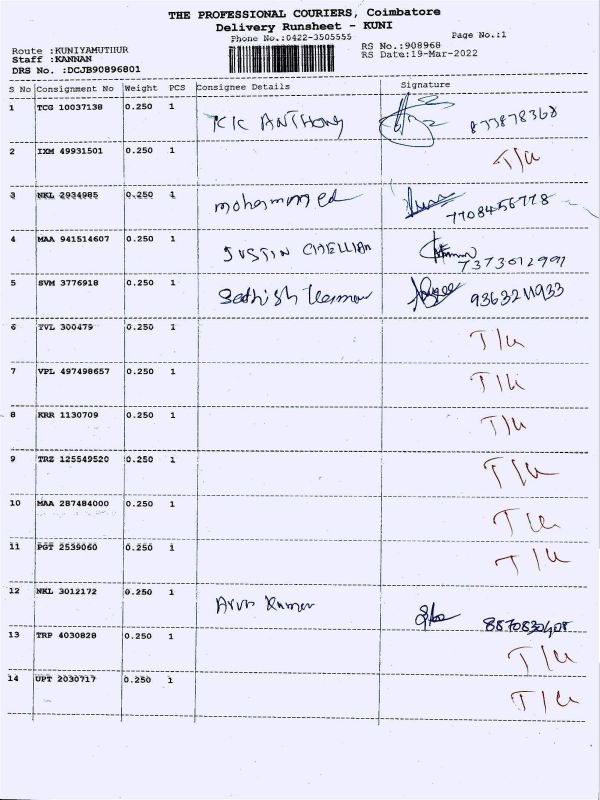 THE PROFESSIONAL COURIERS, Coimbatore
Delivery Runsheet - KUNI
Phone No.:0422-3505555
Page No.:1
Route :KUNIYAMUTHUR
RS No.:908968
Staff :KANNAN
RS Date:19-Mar-2022
DRS No. :DCJB90896801
S No Consignment No Weight PCS Consignee Details Signature
1 TCG 10037138 0.250 1 KK ANTHONY 873878368
2 IXM 49931501 0.250 1 T/u
3 NKL 2934985 0.250 1 mohammed 7708456778
4 MAA 941514607 0.250 1 JUSTIN CHELLIAH 7373012991
5 SVM 3776918 0.250 1 Sathish kumar 9363211933
6 TVL 300479 0.250 1 T/u
7 VPL 497498657 0.250 1 T/u
8 KRR 1130709 0.250 1 T/u
9 TRZ 125549520 0.250 1 T/u
10 MAA 287484000 0.250 1 T/u
11 PGT 2539060 0.250 1 T/u
12 NKL 3012172 0.250 1 Arun Kumar 8870830408
13 TRP 4030828 0.250 1 T/u
14 UPT 2030717 0.250 1 T/u